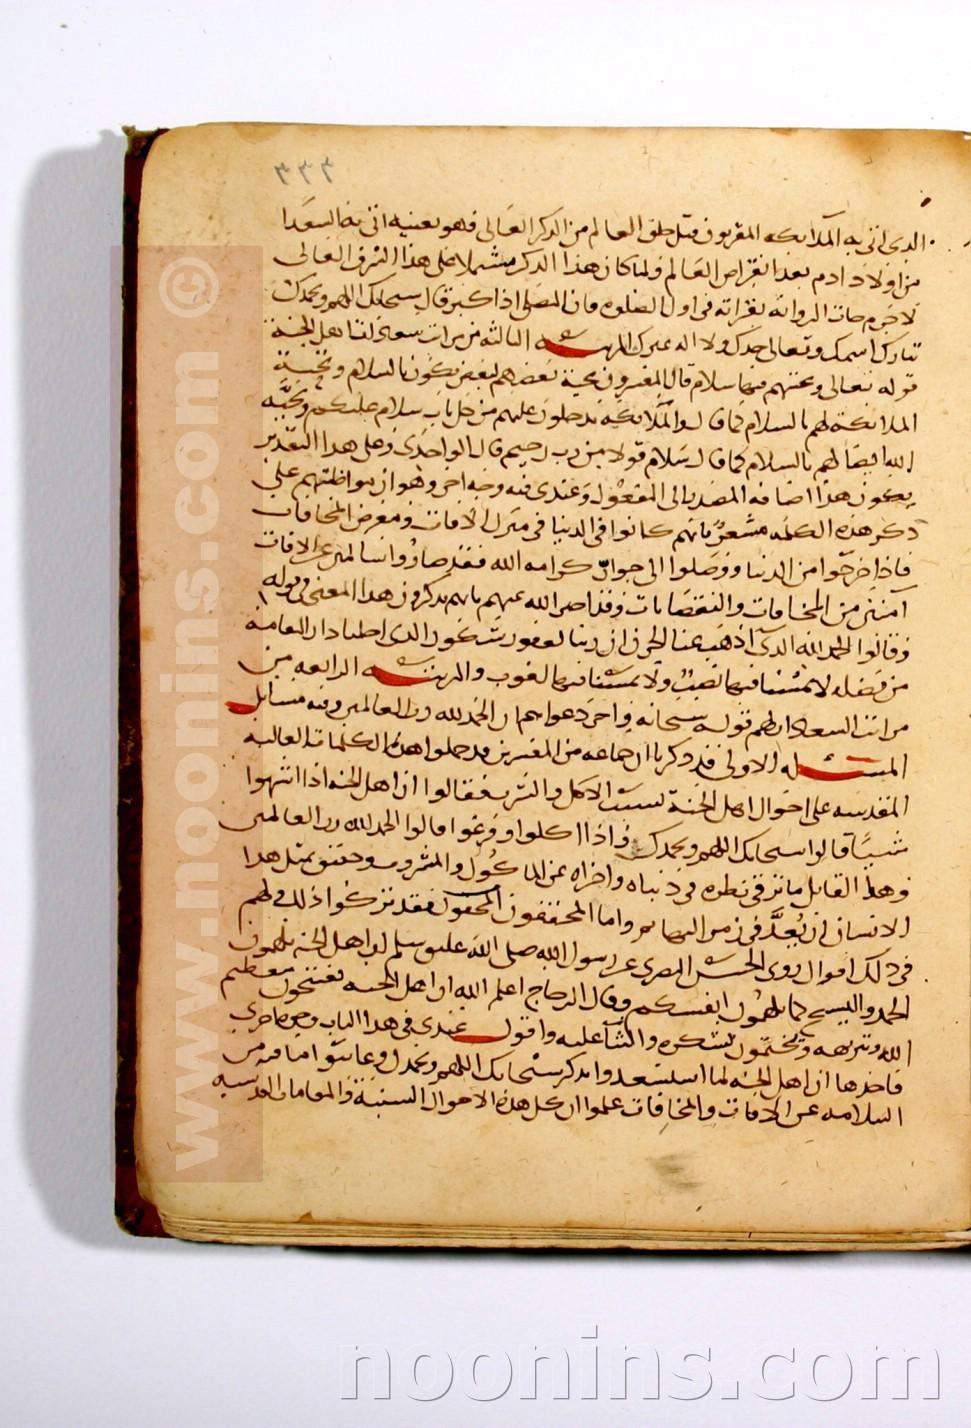 ٣٣٣
الذي اتى به الملائكه المقربون قبل خلق العالم من الذكر العالى فهو بعينه اتى به السعدا
من اولاد ادم بعد انقراض العالم ولما كان هذا الذكر مشتملا على هذا الشرف العالى
لا جرم جات الروايه بقراته فى اول الصلوه فان المصلى اذا كبر قال سبحنك اللهم وبحمدك
تبارك اسمك وتعالى جدك ولا اله غيرك المرتبه الثالثه من مراتب سعادات اهل الجنة
قوله تعالى وتحيتهم فيها سلام قال المفسرون تحية بعضهم لبعض تكون بالسلام وتحية
الملائكة لهم بالسلام كما قال والملائكه يدخلون عليهم من كل باب سلام عليكم وتحية
الله ايضا لهم بالسلام كما قال سلام قولا من رب رحيم قال الواحدى وعلى هذا التقدير
يكون هذا اضافه المصدر الى المفعول وعندى فيه وجه اخر وهو ان مواظبتهم على
ذكر هذه الكلمه مشعر بانهم كانوا فى الدنيا فى منزل الافات وفى معرض المخافات
فاذا خرجوا من الدنيا ووصلوا الى جوار كرامه الله فقد صاروا سالمين عن الافات
آمنين من المخافات والنقصانات وقد اخبر الله عنهم بانهم يذكرون هذا المعنى فى قوله
وقالوا الحمد لله الذى اذهب عنا الحزن ان ربنا لغفور شكور الذى احلنا دار المقامة
من فضله لا يمسنا فيها نصب ولا يمسنا فيها لغوب والمرتبه الرابعه من
مراتب السعادات لهم قوله سبحانه واخر دعواهم ان الحمد لله رب العالمين وفيه مسايل
المسئله الاولى قد ذكرنا ان جماعه من المفسرين قد حملوا هذه الكلمات العاليه
المقدسه على احوال اهل الجنة بسبب الاكل والشرب فقالوا ان اهل الجنه اذا اشتهوا
شييا قالوا سبحانك اللهم وبحمدك واذا اكلوا وفرغوا قالوا الحمد لله رب العالمين
وهذا القايل ما ترقى نظره فى دنياه واخراه عن الماكول والمشروب وحقيق بمثل هذا
الانسان ان يعد فى زمره البهايم واما المحققون المحققون فقد تركوا ذلك ولهم
فى ذلك اقوال روى الحسن البصرى عن رسول الله صلى الله عليه وسلم ان اهل الجنه يلهمون
الحمد والتسبيح كما تلهمون انفسكم وقال الزجاج اعلم الله ان اهل الجنه يفتتحون بتعظيم
الله وتنزيهه ويختمون بشكره والثنا عليه واقول عندى فى هذا الباب وجوه اخرى
فاحدها ان اهل الجنه لما استسعدوا بذكر سبحانك اللهم وبحمدك وعاينوا ما فيه من
السلامه عن الافات والمخافات علموا ان كل هذه الاحوال السنية والمقامات القدسيه
www.noonins.com ©
noonins.com